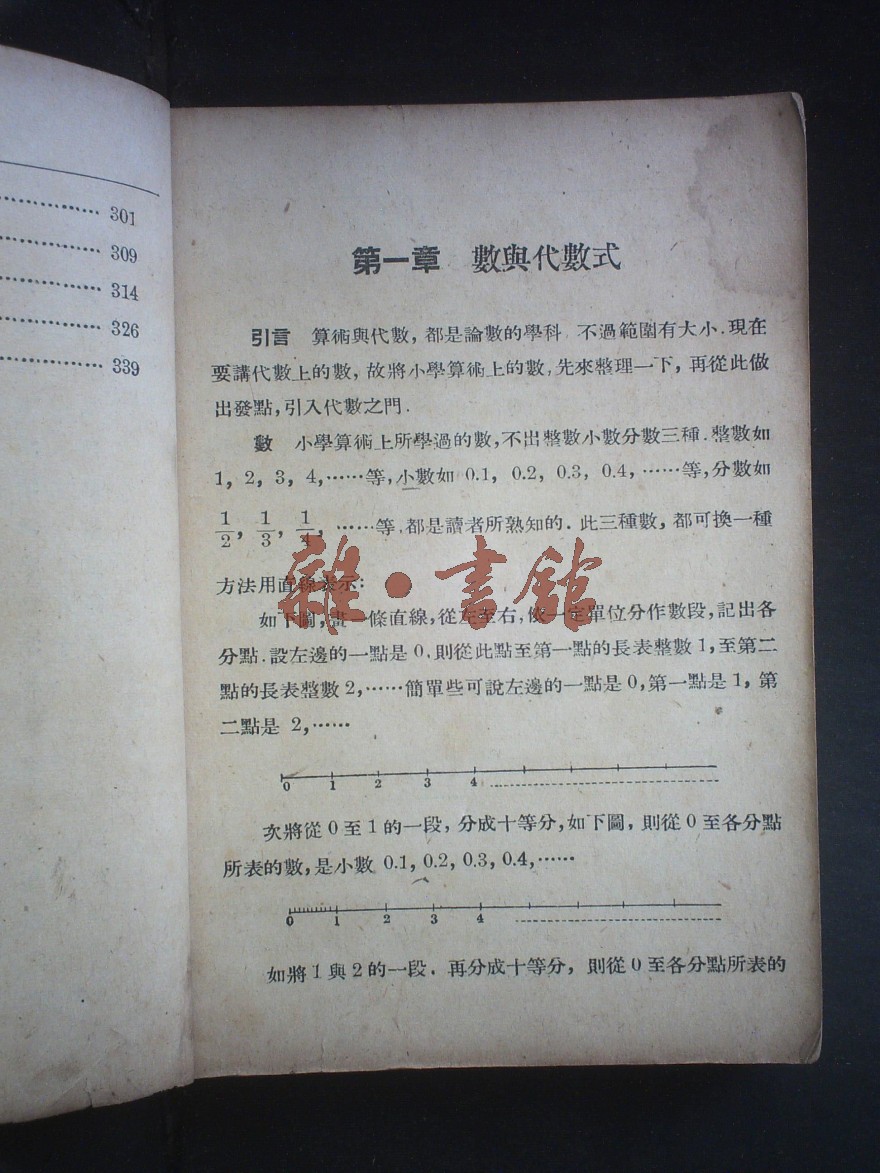 301
309
314
326
339
第一章 數與代數式
引言 算術與代數，都是論數的學科 不過範圍有大小．現在
要講代數上的數，故將小學算術上的數，先來整理一下，再從此做
出發點，引入代數之門．
數 小學算術上所學過的數，不出整數小數分數三種．整數如
1，2，3，4，……等，小數如 0.1，0.2，0.3，0.4，……等，分數如
1/2，1/3，1/4，……等，都是讀者所熟知的．此三種數，都可換一種
方法用直線表示：
如下圖，畫一條直線，從左至右，依一定單位分作數段，記出各
分點．設左邊的一點是 0，則從此點至第一點的長表整數 1，至第二
點的長表整數 2，……簡單些可說左邊的一點是 0，第一點是 1，第
二點是 2，……
0 1 2 3 4
次將從 0 至 1 的一段，分成十等分，如下圖，則從 0 至各分點
所表的數，是小數 0.1，0.2，0.3，0.4，……
0 1 2 3 4
如將 1 與 2 的一段．再分成十等分，則從 0 至各分點所表的
雜·書館